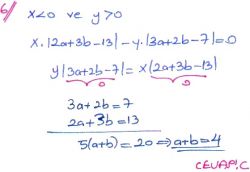 6/ x<0 ve y>0
x.|2a+3b-13|-y.|3a+2b-7|=0
y|3a+2b-7|=x|2a+3b-13|
0 0
3a+2b=7
2a+3b=13
5(a+b)=20⇒a+b=4
CEVAP:C